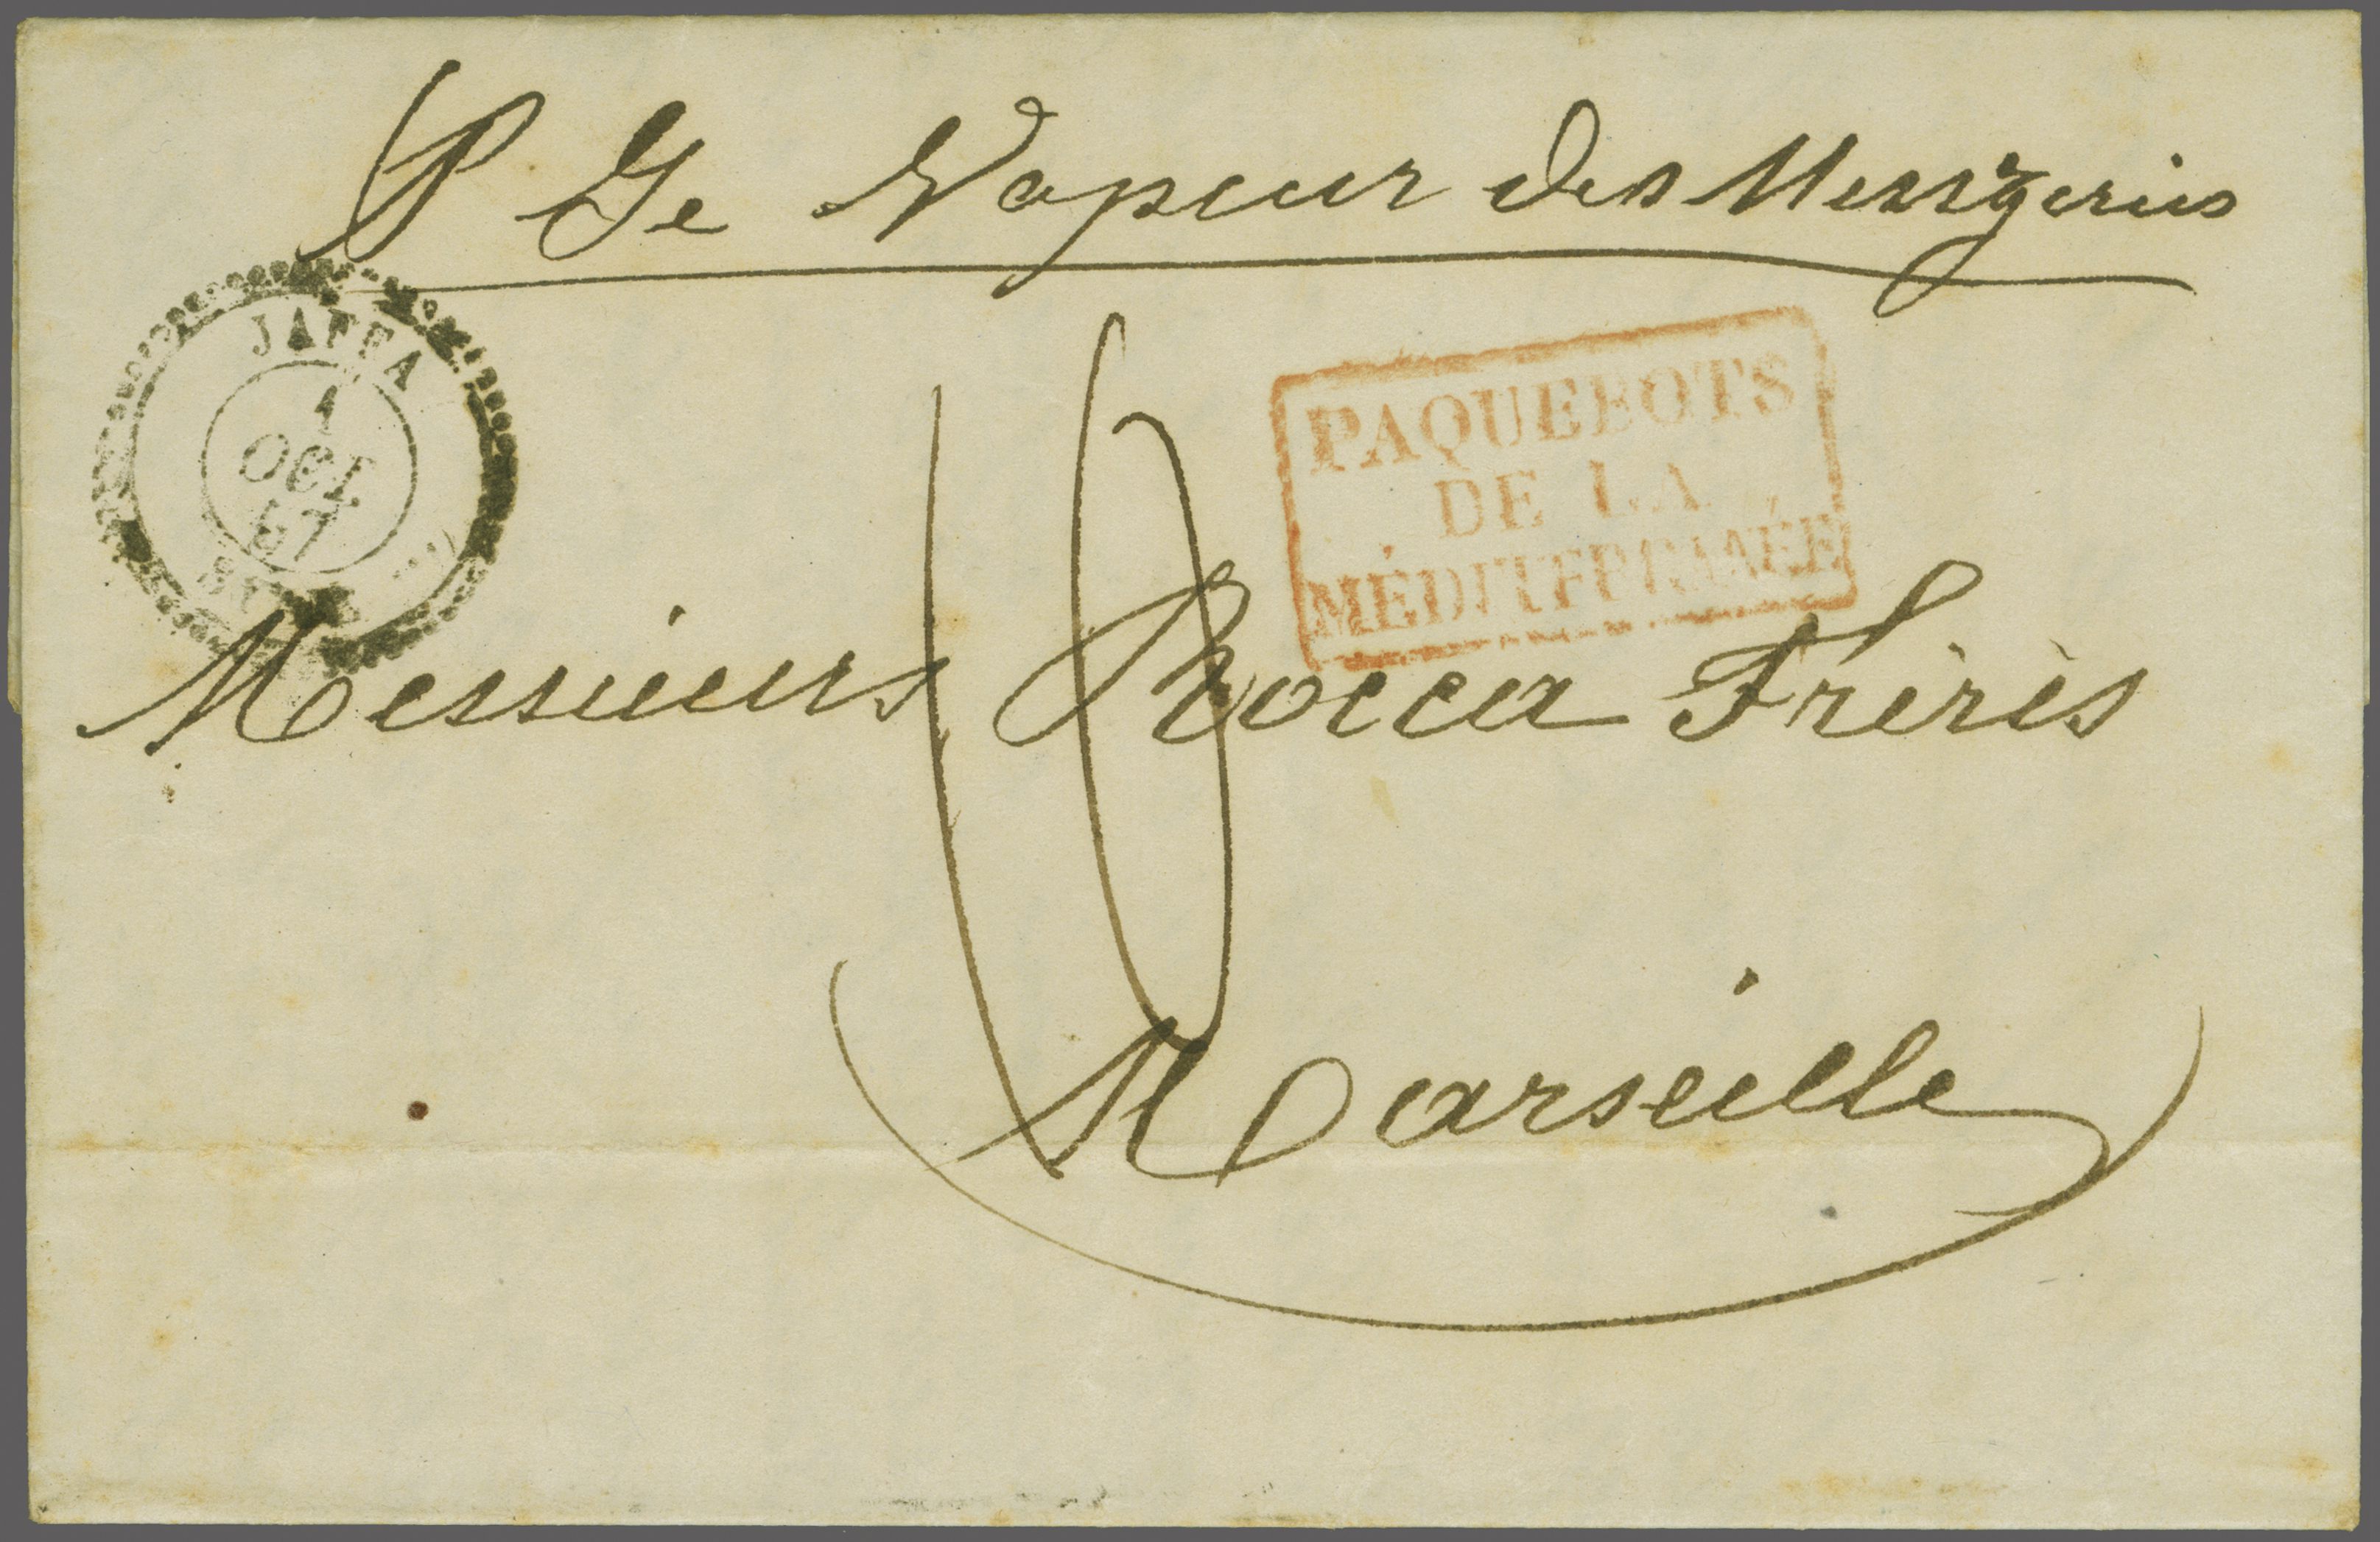 P Le Vapeur des Messageries
JAFFA
1
OCT
57
PAQUEBOTS
DE LA
MÉDITERRANÉE
10
Messieurs Rocca Frères
Marseille